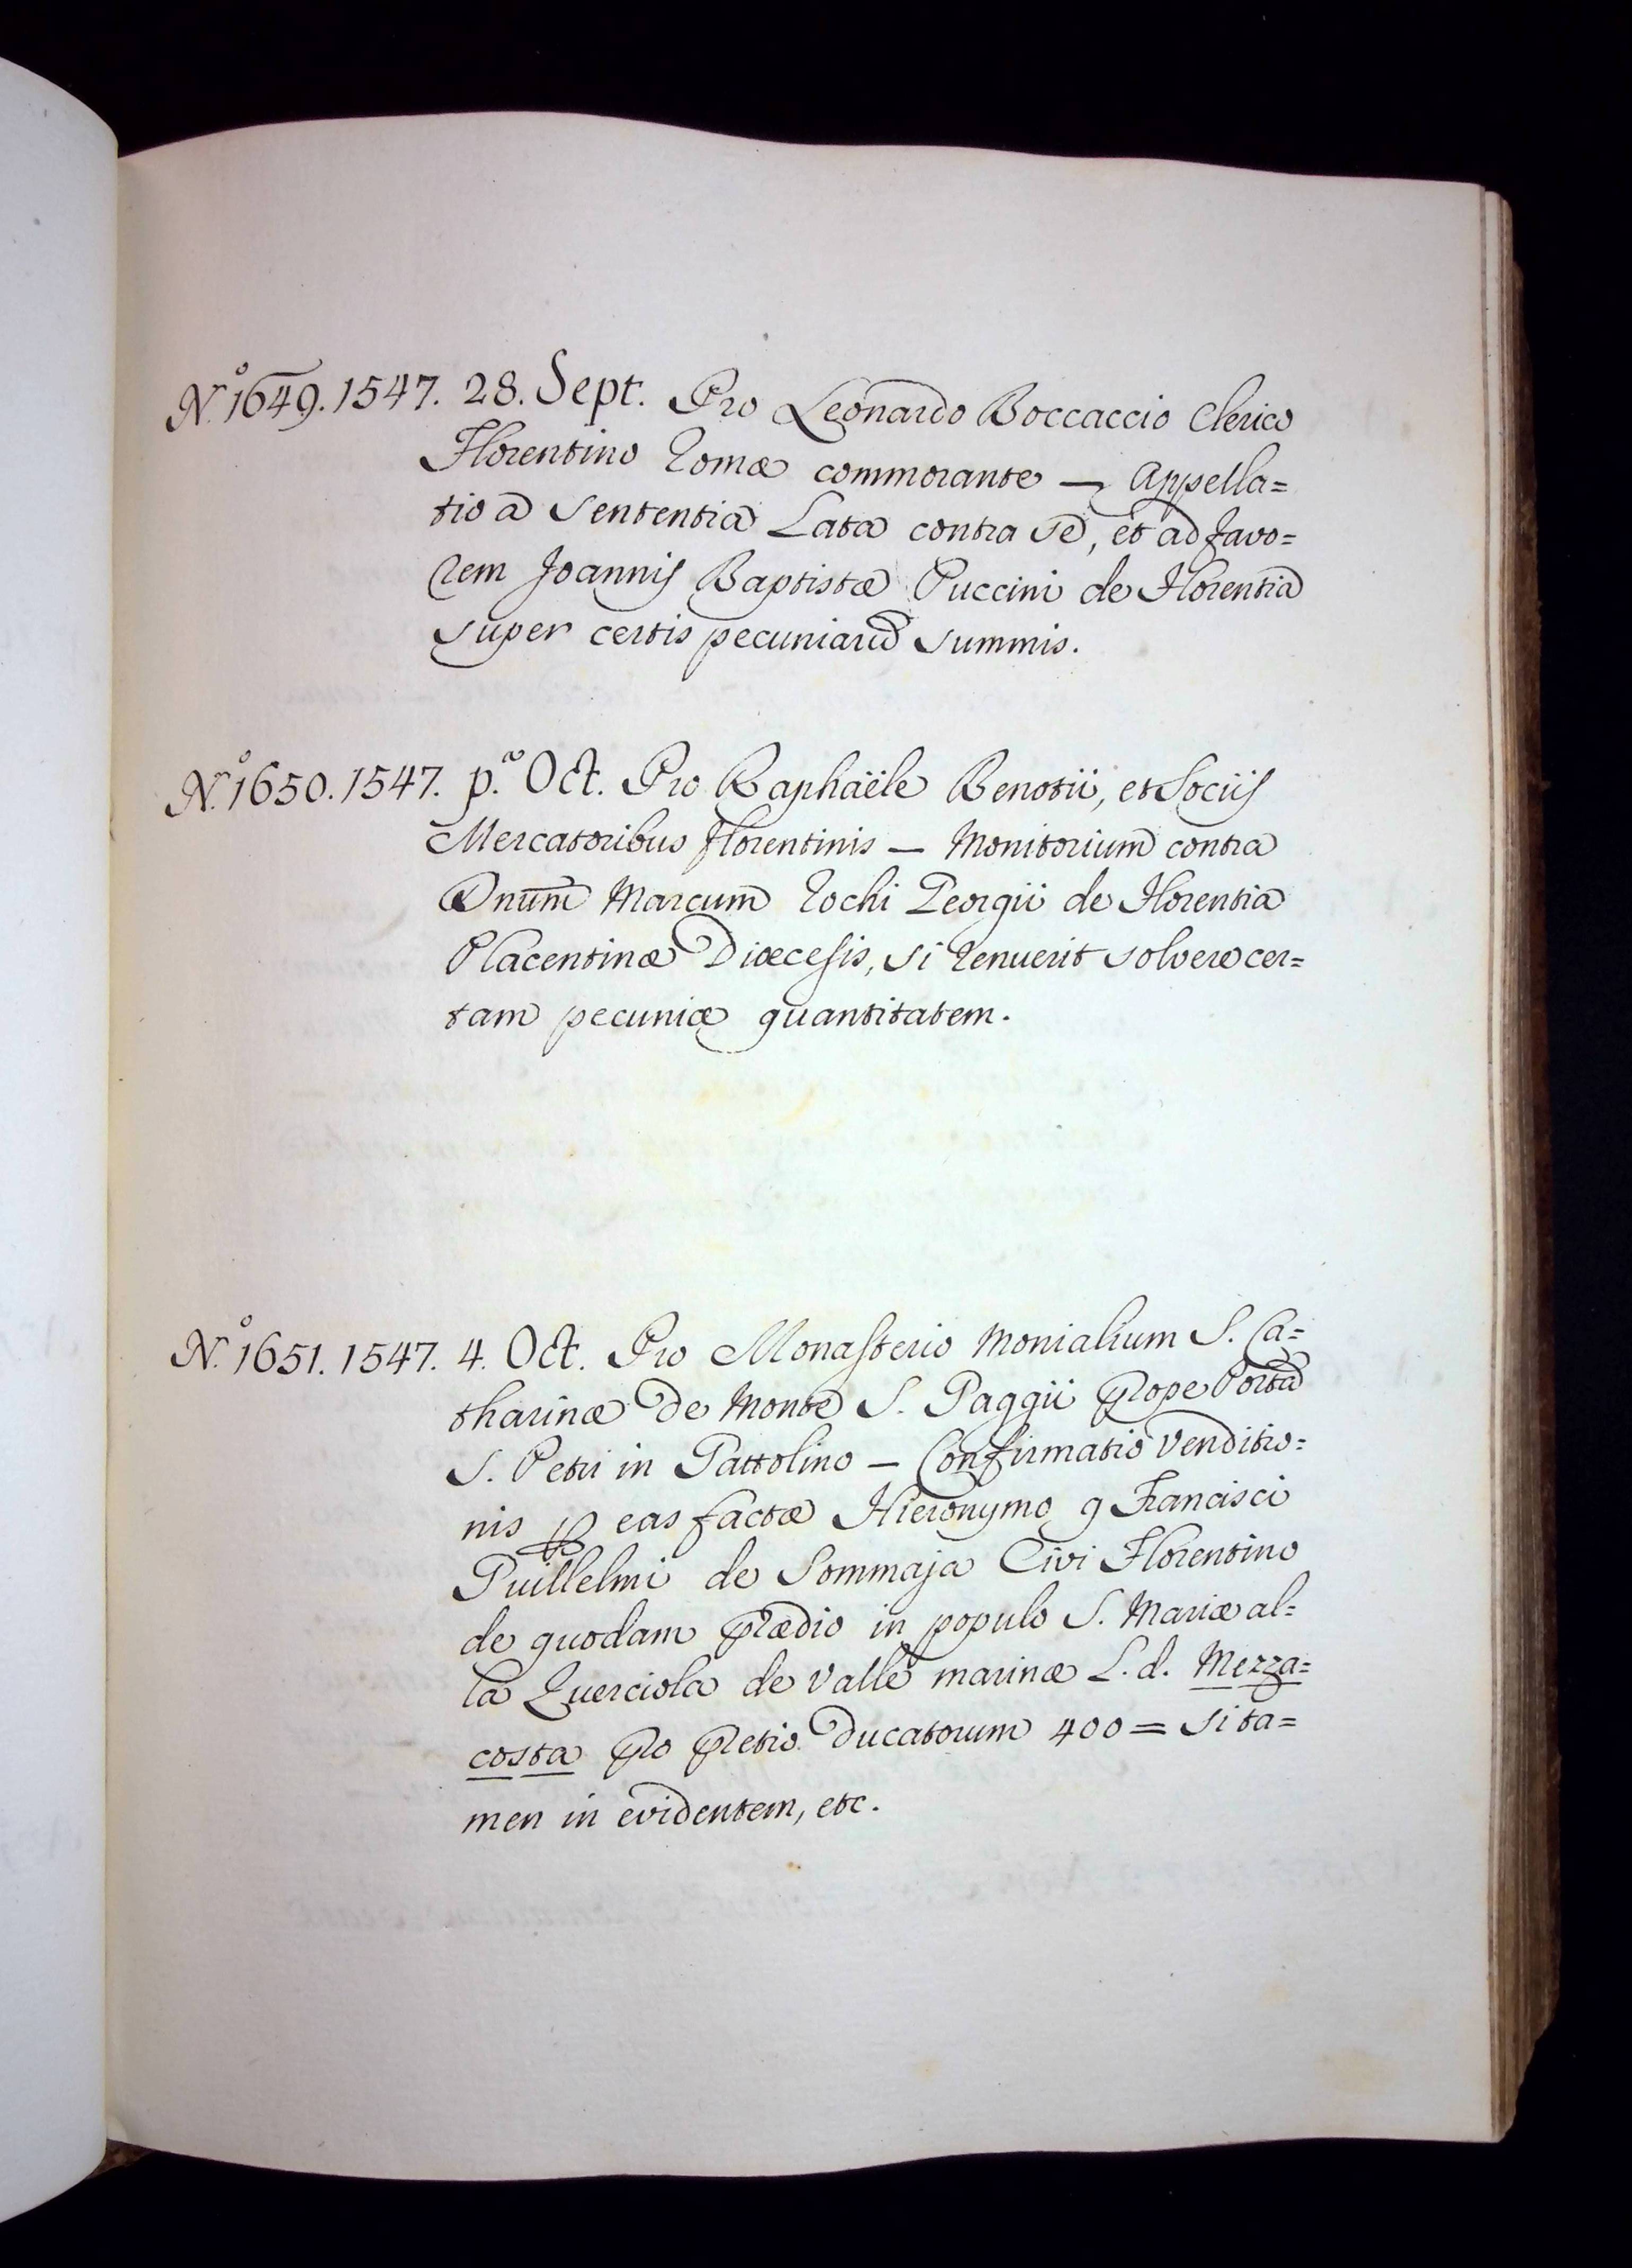 N.º 1649. 1547. 28. Sept. Pro Leonardo Boccaccio Clerico
Florentino Romæ commorante — Appella=
tio a Sententia Lata contra se, et ad favo=
rem Joannis Baptistæ Puccini de Florentia
super certis pecuniarũ summis.
N.º 1650. 1547. p.ª Oct. Pro Raphaële Benotii, et Sociis
Mercatoribus florentinis — Monitorium contra
Dnum̃ Marcum Rochi Georgii de Florentia
Placentinæ Diœcesis, si renuerit solvere cer=
tam pecuniæ quantitatem.
N.º 1651. 1547. 4. Oct. Pro Monasterio Monialium S. Ca=
tharinæ de Monte S. Gaggii prope Portã
S. Petri in Gattolino — Confirmatio Venditio=
nis per eas factæ Hieronymo q Francisci
Guillelmi de Sommaja Civi Florentino
de quodam prædio in populo S. Mariæ al=
la Querciola de Valle marinæ L. d. Mezza=
costa pro pretio Ducatorum 400 = Si ta=
men in evidentem, etc.